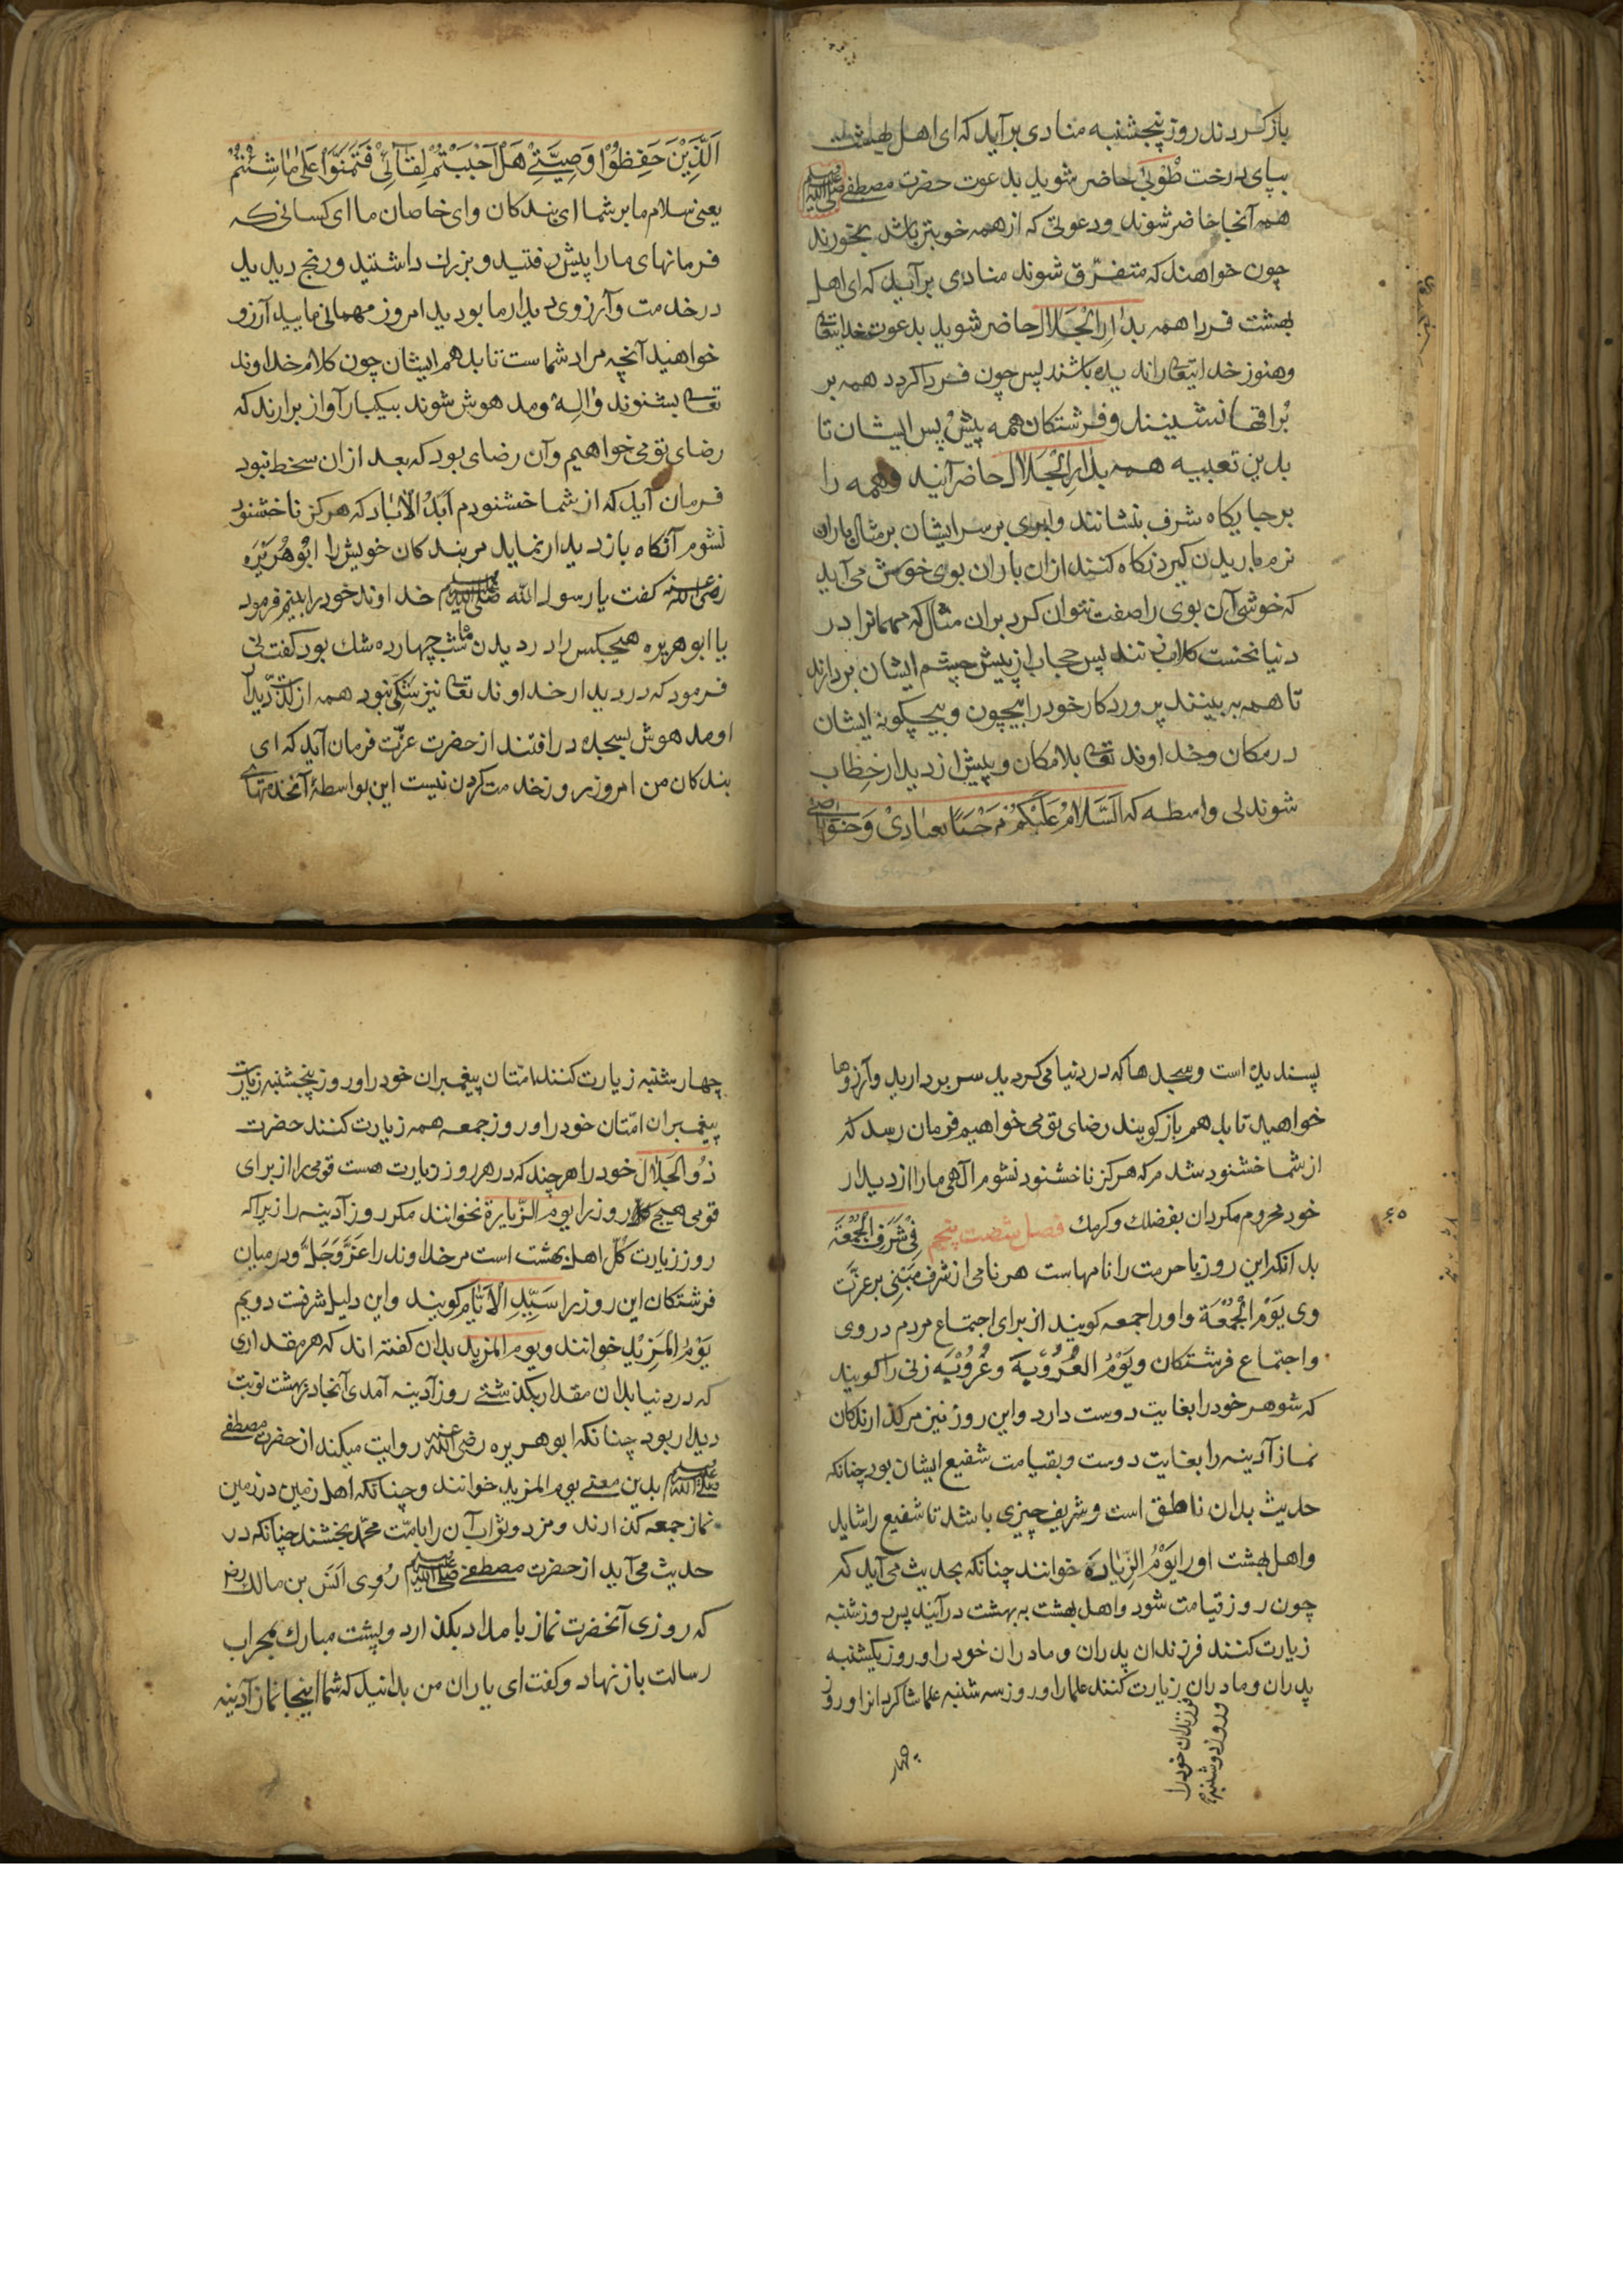 باز کردند روز پنجشنبه منادی برآید که ای اهل بهشت
بپای درخت طُوبیٰ حاضر شوید بدعوت حضرت مصطفے صلی الله علیه وسلم
همه آنجا حاضر شوند و دعوتی که از همه خوبتر باشد بخورند
چون خواهند که متفرّق شوند منادی برآید که ای اهل
بهشت فردا همه بدارِ الْجَلال حاضر شوید بدعوت خدایتعالی
و هنوز خدایتعالی را ندیده باشند پس چون فردا کردد همه بر
بُراقها نشینند و فرشتکان همه پیش و پس ایشان تا
بدین تعبیه همه بدارِ الْجَلال حاضر آیند و همه را
بر جایکاه شرف بنشانند و ابری بر سر ایشان بر مثال باران
نرم باریدن کیرد نکاه کنند از ان باران بوی خوش می آید
که خوشی آن بوی را صفت نتوان کرد بران مثال که مهمانرا در
دنیا نخست کلاب زنند پس حجاب از پیش چشم ایشان بردارند
تا همه به بینند پروردکار خود را بیچون و بیچکونه ایشان
در مکان و خداوند تعالی بلامکان و پیش از دیدار خِطاب
شوند بی واسطه که اَلسَّلامُ عَلَیْکُمْ مَرْحَبًا بِعِبَادِیْ وَخَوَاصِّی
اَلَّذِیْنَ حَفِظُوْا وَصِیَّتِیْ هَلْ اَحْبَبْتُمْ لِقَآئِیْ فَتَمَنَّوْا عَلیٰ مَا شِئْتُمْ
یعنی سلام ما بر شما ای بندکان و ای خاصان ما ای کسانی که
فرمانهای ما را پیش رفتید و بزرك داشتید و رنج دیدید
در خدمت و آرزوی دیدار ما بودید امروز مهمانی مایید آرزو
خواهید آنچه مراد شماست تا بدهم ایشان چون کلام خداوند
تعالی بشنوند وٰالِهْ و مدهوش شوند بیکبار آواز برارند که
رضای تو می خواهیم و آن رضای بود که بعد از ان سخط نبود
فرمان آید که از شما خشنودم اَبَدُ الْاٰبَاد که هرکز ناخشنود
نشوم آنکاه باز دیدار نماید مر بندکان خویش را ابُوهُرَیْرَه
رضی الله عنه کفت یا رسول الله صلی الله علیه وسلم خداوند خود را بینیم فرمود
یا ابوهریره هیچکس را در دیدن ماه شب چهارده شك بود کفت نی
فرمود که در دیدار خداوند تعالی نیز شکی نبود همه از لذّت دیدار
او مدهوش بسجده در افتند از حضرت عزّت فرمان آید که ای
بندکان من امروز روز خدمت کردن نیست این بواسطۀ آنخدمتهای
پسندیده است و سجدها که در دنیا می کردید سر بردارید و آرزوها
خواهید تا بدهم باز کویند رضای تو می خواهیم فرمان رسد که
از شما خشنود شدم که هرکز ناخشنود نشوم الهی ما را از دیدار
خود محروم مکردان بفضلك و کرمك فصل شصت پنجم فِیْ شَرَفِ الْجُمُعَه
٦٥
بدانکه این روز با حرمت را نامهاست هر نامی از شرف مَبْنی بر عزّت
وی یَوْمُ الْجُمُعَة و او را جمعه کویند از برای اجتماع مردم در وی
و اجتماع فرشتکان و یَوْمُ العُرُوْبَه و عُرُوْبَه زنی را کویند
که شوهر خود را بغایت دوست دارد و این روز نیز مر کذارندکان
نماز آدینه را بغایت دوست و بقیامت شفیع ایشان بود چنانکه
حدیث بدان ناطق است و شریف چیزی باشد تا شفیع را شاید
و اهل بهشت او را یَوْمُ الزِّیَارَه خوانند چنانکه بحدیث می آید که
چون روز قیامت شود و اهل بهشت به بهشت در آیند پس روز شنبه
زیارت کنند فرزندان پدران و مادران خود را و روز یکشنبه
پدران و مادران زیارت کنند علما را و روز سه شنبه علما شاکردانرا و روز
فرزندان خود را
و روز دوشنبه
چهار
چهارشنبه زیارت کنند امّتان پیغمبران خود را و روز پنجشنبه زیارت
پیغمبران امّتان خود را و روز جمعه همه زیارت کنند حضرت
ذُو الجَلَال خود را هرچند که در هر روز زیارت هست قومی را از برای
قومی هیچ روز را یوم الزّیارة نخوانند مکر روز آدینه را زیراکه
روز زیارت کُلّ اهل بهشت است مر خداوند را عَزَّ وَجَلَّ و در میان
فرشتکان این روز را سَیِّدِ الْاَیَّام کویند و این دلیل شرفت دویم
یَوْمُ المَزِیْد خوانند و یوم المزید بدان کفته اند که هر مقداری
که در دنیا بدان مقدار بکذشتی روز آدینه آمدی آنجا در بهشت نوبت
دیدار بود چنانکه ابوهریره رضی الله عنه روایت میکند از حضرت مصطفے
صلی الله علیه وسلم بدین معنی یوم المزید خوانند و چنانکه اهل زمین در زمین
نماز جمعه کذارند و مزد و ثواب آن را بامّت محمّد بخشند چنانکه در
حدیث می آید از حضرت مصطفے صلی الله علیه وسلم رُوِی اَنَس بن مالك رض
که روزی آنحضرت نماز بامداد بکذارد و پشت مبارك بمحراب
رسالت باز نهاد و کفت ای یاران من بدانید که شما اینجا نماز آدینه